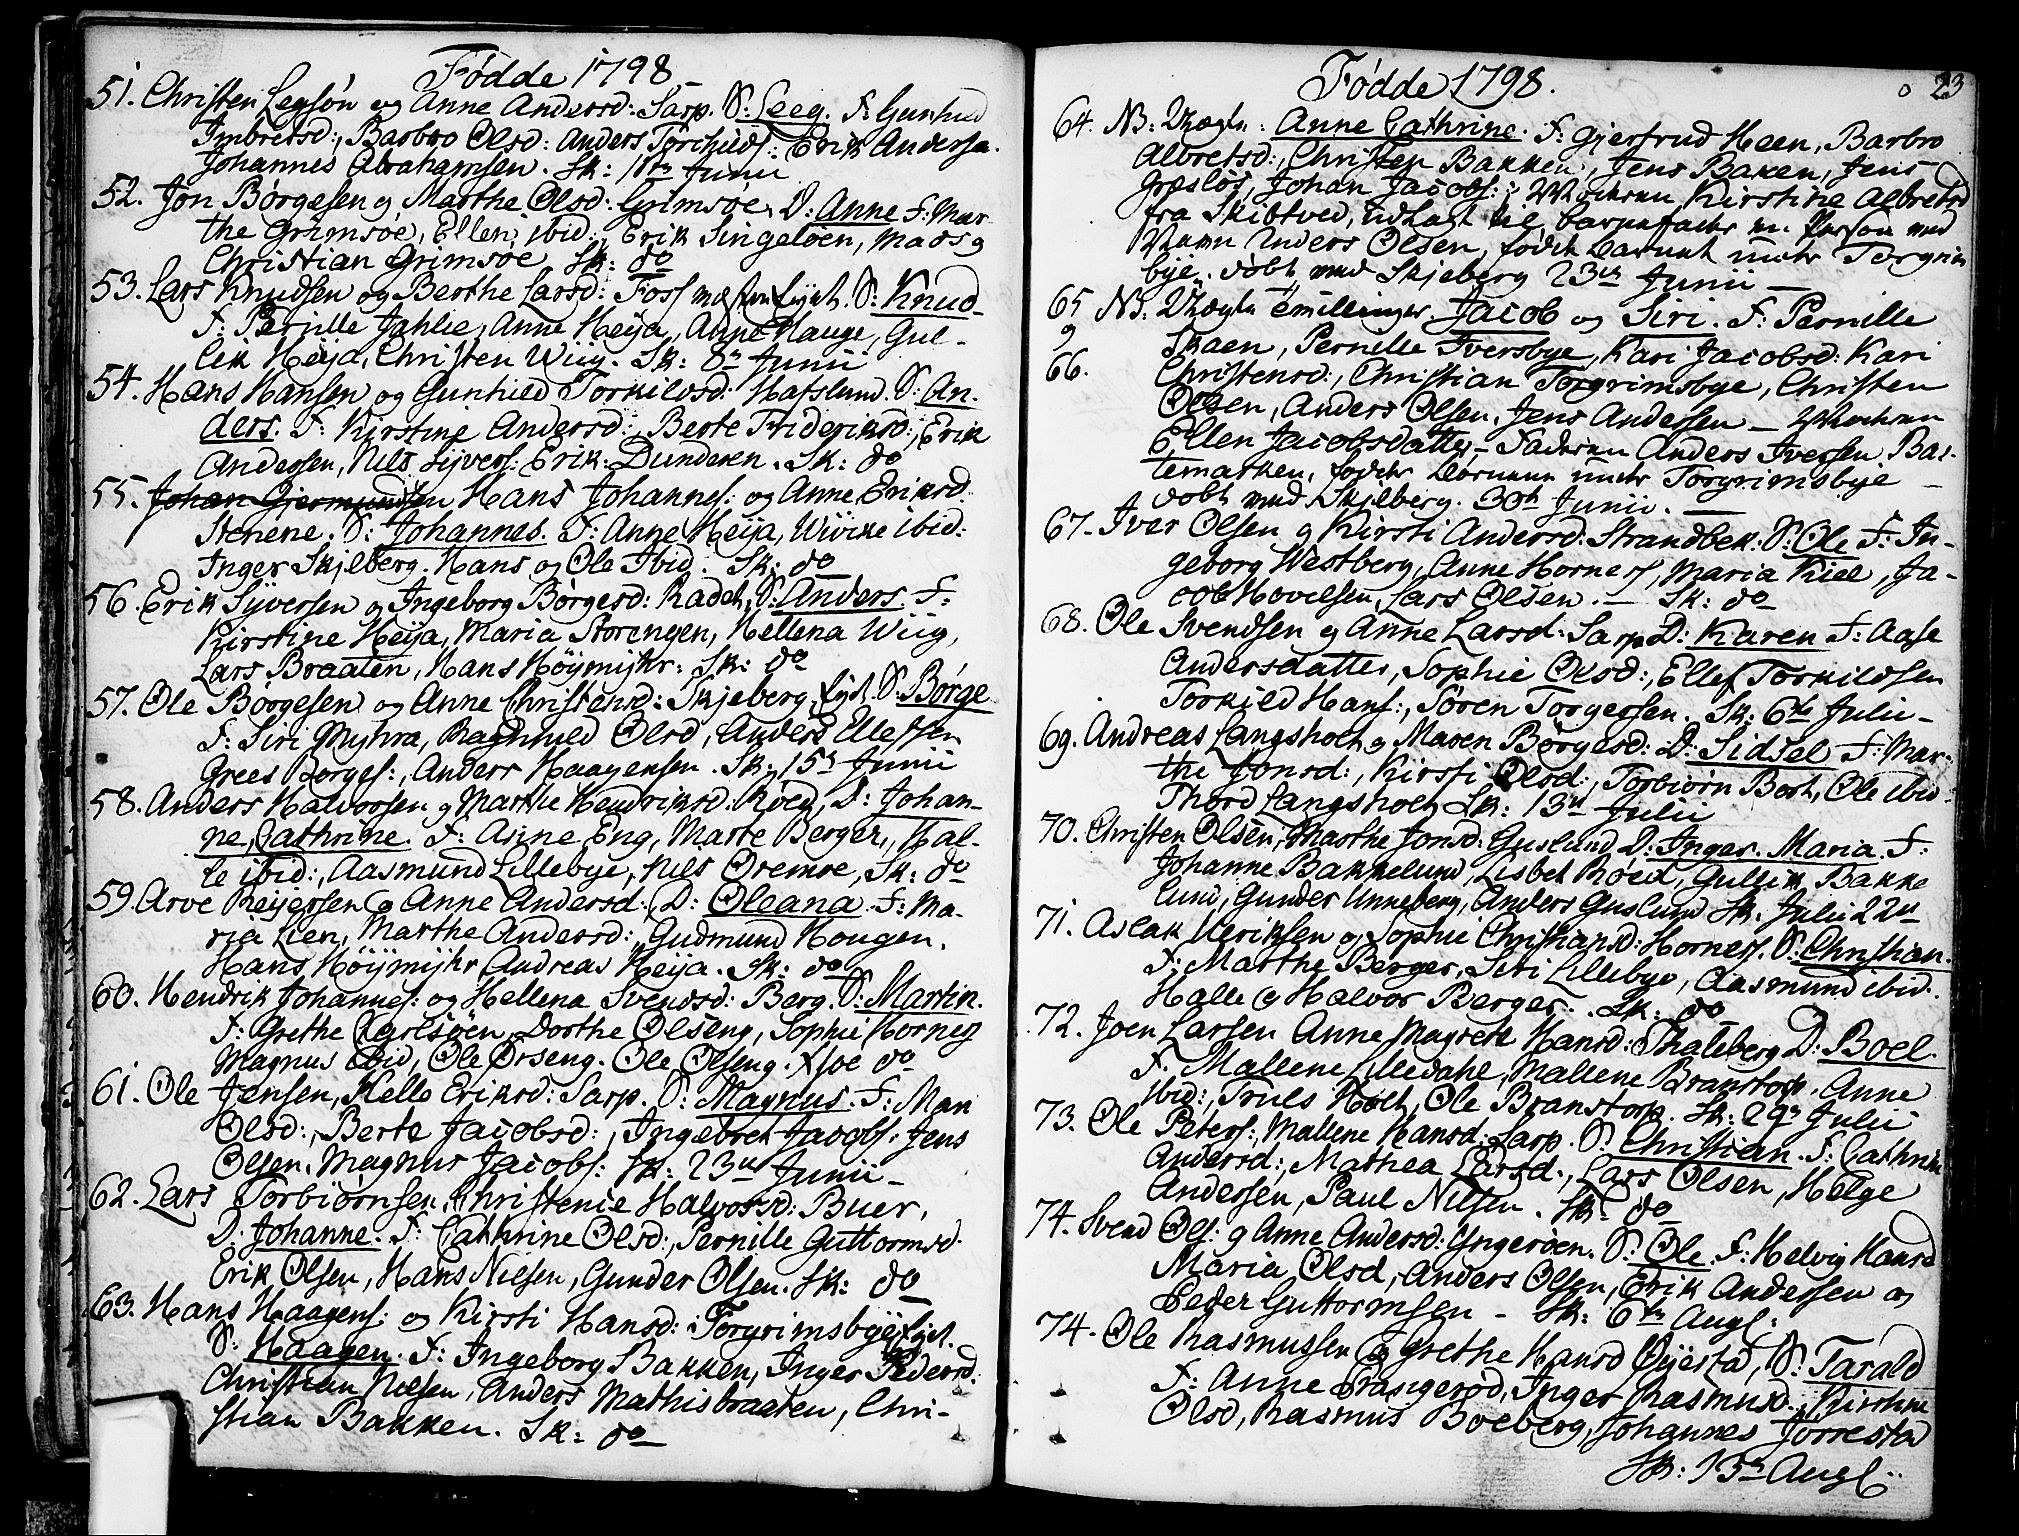 Fødde 1798
51. Christen Leysøn og Anne Andersd: Sarp. S: Leeg. F: Gunhild
Imbretsd:, Barbro Olsd: Anders Torchilds: Erik Andersen.
Johannes Abrahamsen. Sk: 1ste Junii
52. Jon Børgesen og Marthe Olsd: Grimsøe, D: Anne F: Mar-
the Grimsøe, Ellen ibid:, Erik Singeløen, Mads og
Christian Grimsøe Sk: do
53. Lars Knudsen og Berthe Larsd: Foss S: Knud
F: Pernille Jahlie, Anne Heija, Anne Hauge, Gul-
lik Heija, Christen Wiig. Sk: 8de Junii
54. Hans Hansen og Gunhild Torkildsd: Hafslund. S: An-
ders. F: Kirstine Andersd:, Berte Frideriksd:, Erik
Andersen, Nils Syvers: Erik Dunderen. Sk: do
55. Johan Gjermundsen Hans Johannes: og Anne Eriksd:
Stenene. S: Johannes. F: Anne Heija, Wivike ibid:
Inger Skjeberg. Hans og Ole Ibid: Sk: do
56. Erik Syversen og Ingeborg Børgesd: Radet, S: Anders. F:
Kirstine Heija, Maria Storengen, Hellena Wiig,
Lars Braaten, Hans Høymyhr: Sk: do
57. Ole Børgesen og Anne Christensd: Skjeberg S: Børge
F: Siri Myhra, Ragnhild Olsd, Anders Ellefsen
Grees Børges:, Anders Haagensen. Sk: 15de Junii
58. Anders Halvorsen og Marthe Hendriksd: Røed, D: Johan-
ne Cathrine. F: Asine Eng, Marte Berger, Hal-
le ibid:, Aasmund Lillebye, Nils Oremoe, Sk: do
59. Arve Reijersen og Anne Andersd:, D: Oleana. F: Ma-
ria Lien, Marthe Andersd:, Gudmund Hougen,
Hans Høijmijhr Andreas Heija. Sk: do
60. Hendrik Johannes: og Hellena Svendsd: Berg. S: Martin.
F: Grethe Karlsøen, Dorthe Olseng, Sophie Hornes
Magnus Ibid, Ole Ørseng. Ole Olseng. Hoe do
61. Ole Jensen, Helle Eriksd: Sarp. S: Magnus. F: Mari
Olsd:, Berte Jacobsd:, Ingebret Jacobs: Jens
Olsen, Magnus Jacobs: Sk: 23de Junii -
62. Lars Torbiørnsen, Christenie Halvorsd: Buer,
D: Johanne. F: Cathrine Olsd:, Pernille Guttormsd:
Erik Olsen, Hans Nilsen, Gunder Olsen. Sk: do
63. Hans Haagens: og Kirsti Hansd: Torgrimsbye
S: Haagen. F: Ingeborg Bakken, Inger Pedersd.
Christian Nilsen, Anders Mathisbraaten, Chri-
stian Bakken. Sk: do
Fødde 1798.
23
64. NB: Uægte: Anne Cathrine. F: Gjertrud Heen, Barbro
Albretsd:, Christen Bakken, Jens Baken, Jens
Græsløs, Johan Jacobs:; Moderen Kirstine Albretsd
fra Skibtved, udlagt til barnefader en Person ved
Navn Anders Olsen, født Barnet under Torgrim
bye. døbt ved Skjeberg 23de Junii
65 NB: Uægte Tvillinger. Jacob og Siri. F: Pernille
og Skaen, Pernille Iversbye, Kari Jacobsd: Kari
66. Christensd:, Christian Torgrimsbye, Christen
Olsen, Anders Olsen, Jens Andersen - Moderen
Ellen Jacobsdatter - Faderen Anders Iversen Bat-
temarken, fødte Børnene under Torgrimsbye
døbt ved Skjeberg. 30te Junii.
67. Iver Olsen og Kirsti Andersd: Strandbek. S: Ole F: In-
geborg Westberg, Anne Hornes, Maria Kiil, Ja-
cob Hovelsen, Lars Olsen. - Sk: do
68. Ole Svendsen og Anne Larsd: Sarp D: Karen F: Aase
Andersdatter, Sophie Olsd:, Ellef Torkildsen
Torkild Hans:, Søren Torgersen. Sk: 6te Julii -
69. Andreas Langsholt og Maren Børgesd: D: Sidsel F: Mar-
the Jonsd:, Kirsti Olsd:, Torbiørn Bost, Ole ibid
Thord Langsholt, Sk: 13de Julii
70. Christen Olsen, Marthe Jonsd: Guslund D: Inger Maria. F:
Johanne Bakkelund, Lisbet Røed, Gullik Bakke
lund, Gunder Unneberg, Anders Guslund Sk: Julii 22de
71. Aslak Ulriksen og Sophie Christiansd: Horness. S: Christian.
F: Marthe Berger, Siri Lillebye, Aasmund ibid:
Halle og Halvor Berger. Sk: do
72. Joen Larsen Anne Magrete Hansd: Thaleberg D: Boel.
F: Mallene Lilledahl, Mallene Branstorp. Anne
Ibid:, Truls Holt, Ole Branstorp. Sk: 29de Julii
73. Ole Peters:, Mallene Hansd: Sarp. S: Christian. F: Cathrin
Andersd:, Mathea Larsd:, Lars Olsen, Helge
Andersen, Paul Nilsen. Sk: do
74. Svend Ols: og Anne Andersd: Yngerøen. S: Ole F: Helvig Hansd
Maria Olsd, Anders Olsen, Erik Andersen og
Peder Guttormsen - Sk: 6te Augl:
74. Ole Rasmussen og Grethe Hansd Øijestad, S: Tarald
F: Anne Grasgerød, Inger Rasmusd:, Kirstine
Olsd, Rasmus Boeberg, Johannes Jørrestad
Sk: 13de Augl: